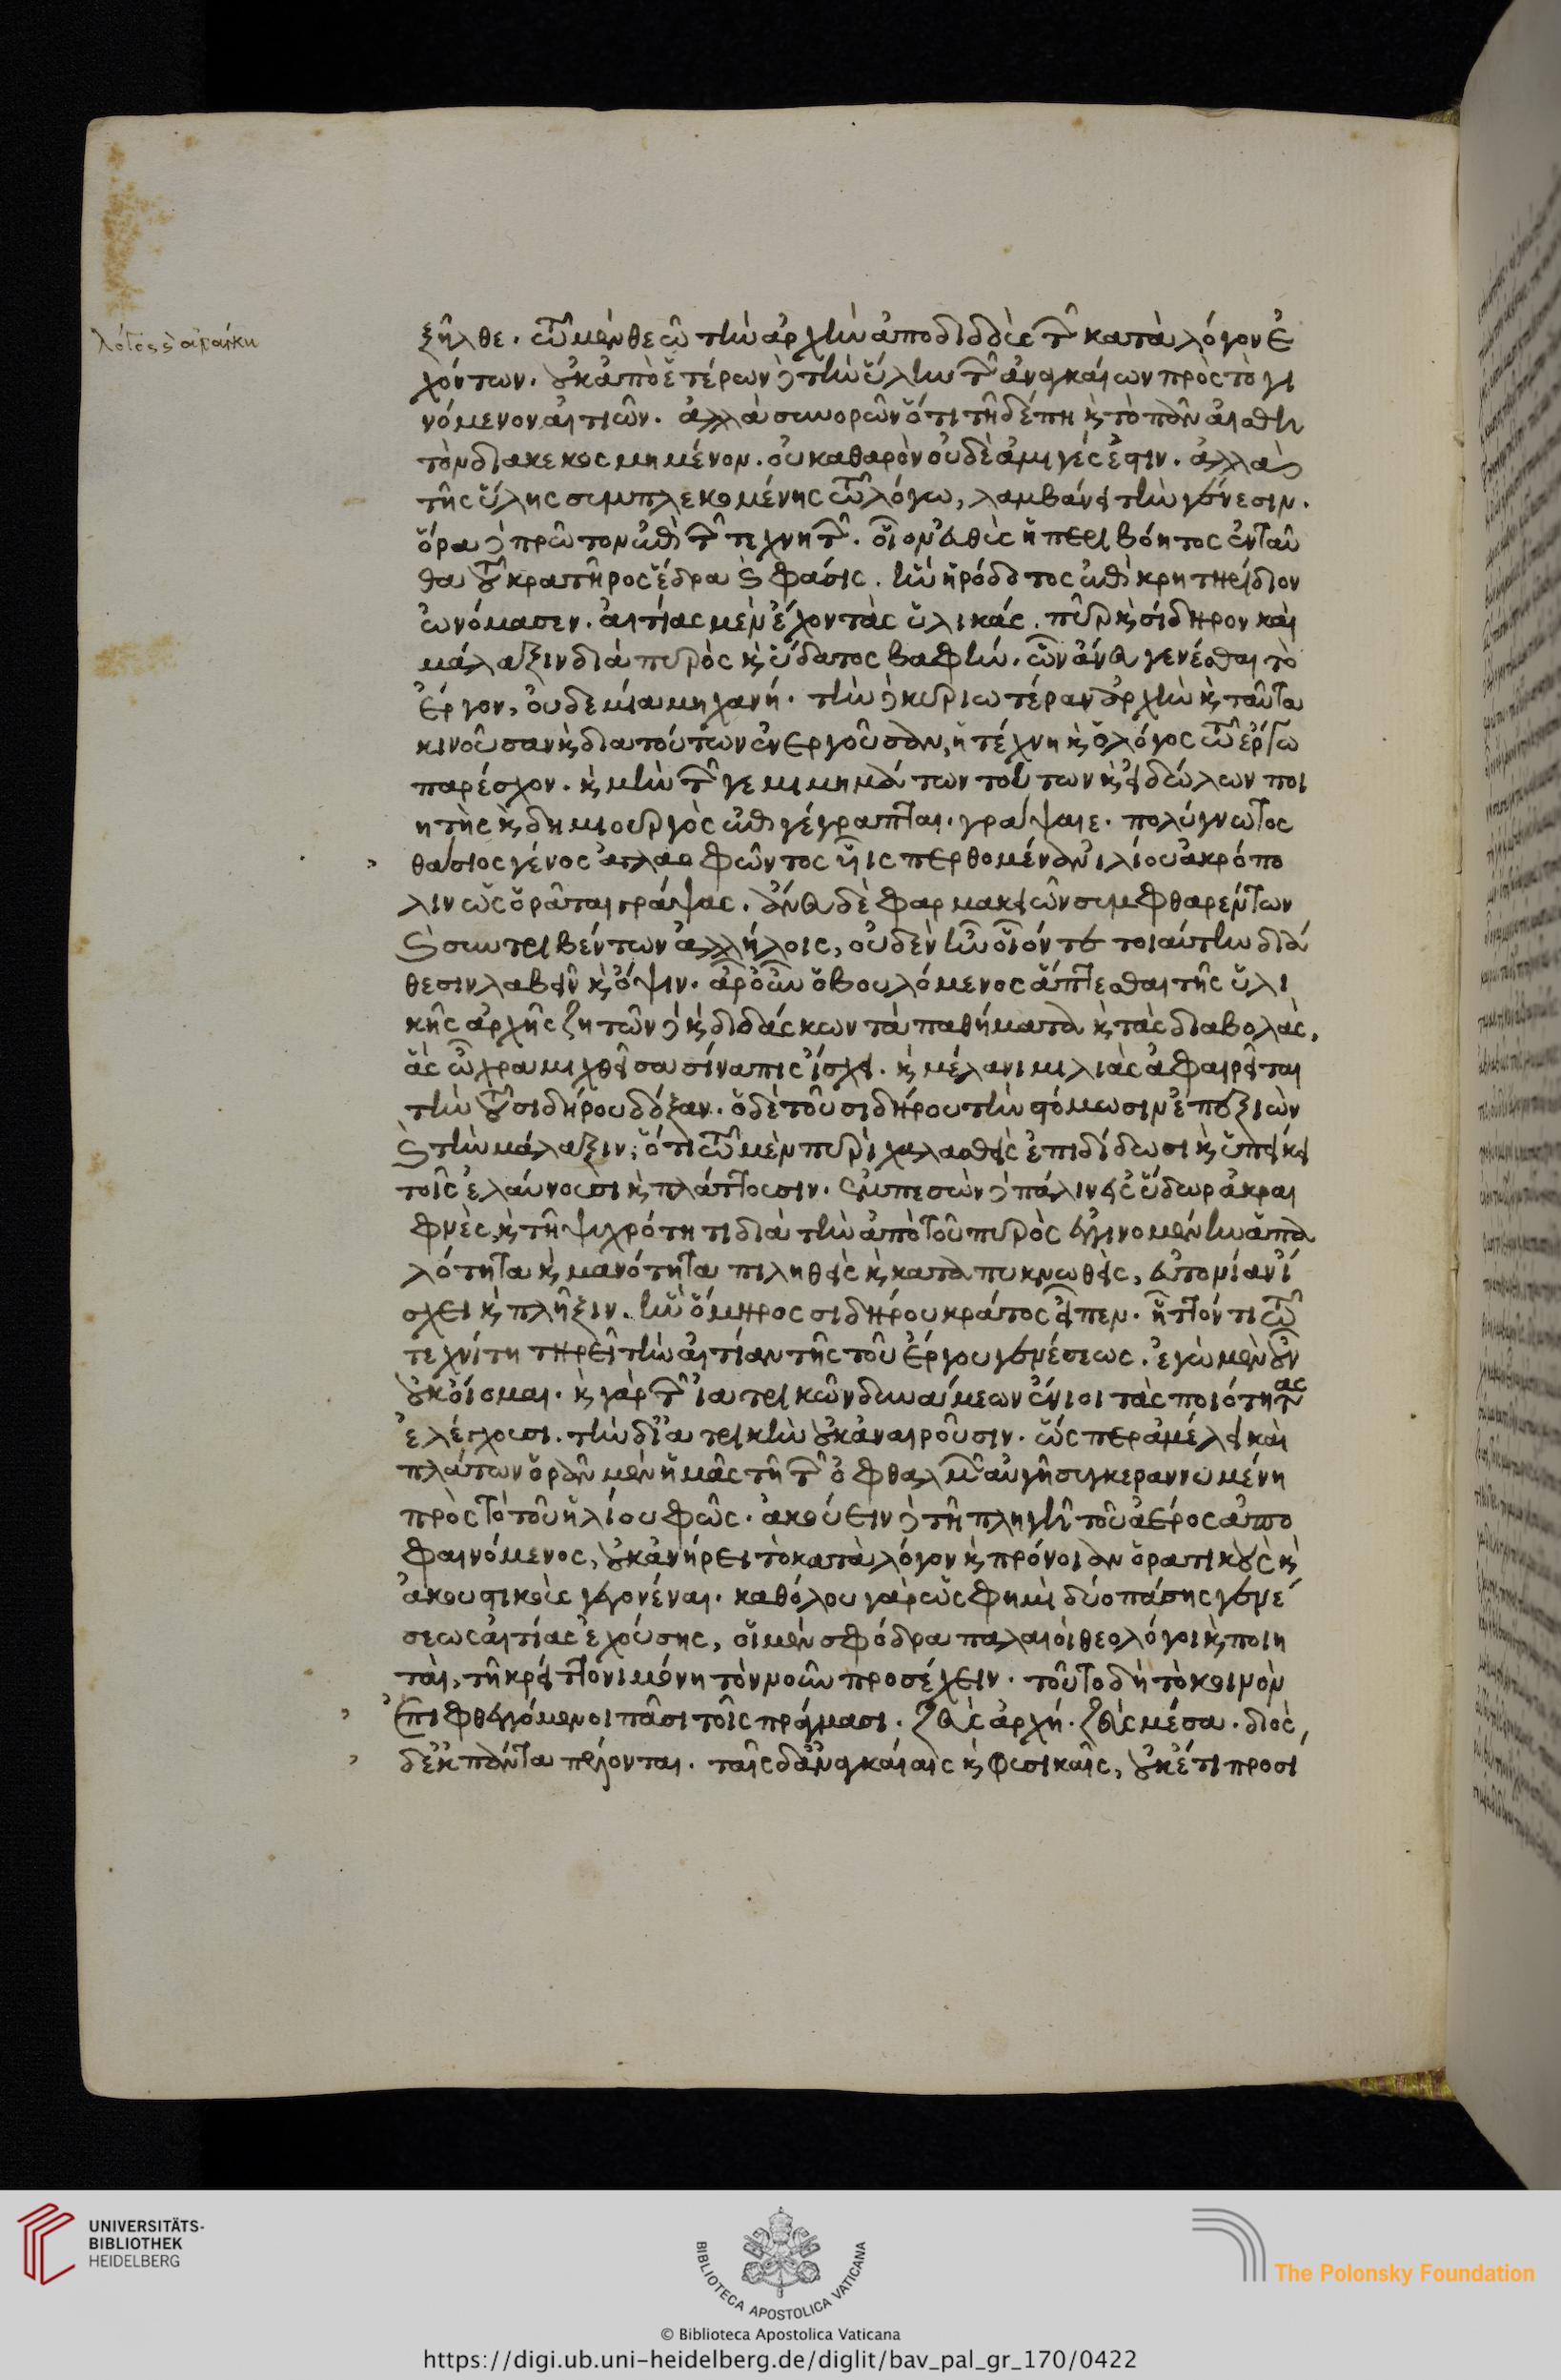 λόγος κ ἀνάγκη
ξῆλθε. τῶ μὲν θεῶ τὴν ἀρχὴν ἀποδιδοὺς τῶν κατὰ λόγον ἐ
χόντων. οὐκ ἀπὸ ἑτέρων δὲ τὴν ὕλην τῶν ἀναγκαίων πρὸς τὸ γι
νόμενον αἰτιῶν. ἀλλὰ συνορῶν ὅτι τῆδέ πη καὶ τὸ πᾶν αἰσθη
τὸν διακεκοσμημένον. οὐ καθαρὸν οὐδὲ ἀμιγές ἐστιν. ἀλλὰ δὲ
τῆς ὕλης συμπλεκομένης τῶ λόγω, λαμβάνει τὴν γένεσιν.
ὅρα δὲ πρῶτον ἐπὶ τῶν τεχνητῶν. οἷον εὐθὺς ἡ περιβόητος ἐνταῦ
θα τοῦ κρατῆρος ἕδρα καὶ βάσις. ἣν ἡρόδοτος ὑποκρητηρίδιον
ὠνόμασεν. αἰτίας μὲν ἔχον τὰς ὑλικάς. πῦρ καὶ σίδηρον καὶ
μάλαξιν διὰ πυρὸς καὶ ὕδατος βαφήν. ὧν ἄνευ γενέσθαι τὸ
ἔργον, οὐδεμία μηχανή. τὴν δὲ κυριωτέραν ἀρχὴν καὶ ταῦτα
κινοῦσαν καὶ διὰ τούτων ἐνεργοῦσαν, ἡ τέχνη καὶ ὁ λόγος τῶ ἔργω
παρέσχον. καὶ μὴν τῶν γε μιμημάτων τούτων καὶ εἰδώλων ποι
ητὴς καὶ δημιουργὸς ἐπιγέγραπται. γράψαιε. πολύγνωτος
θάσιος γένος ἀγλαοφῶντος ὑὶς περθομένην ἰλίου ἀκρόπο
λιν ὡς ὁρᾶται γράψας. ἄνευ δὲ φαρμακειῶν συμφθαρέντων
καὶ συντριβέντων ἀλλήλοις, οὐδὲν ἦν οἷόν τε τοιαύτην διά
θεσιν λαβεῖν καὶ ὄψιν. ἆρ' οὖν ὁ βουλόμενος ἅπτεσθαι τῆς ὑλι
κῆς ἀρχῆς ζητῶν δὲ καὶ διδάσκων τὰ παθήματα καὶ τὰς διαβολὰς,
ἃς ὤχρα μιχθεῖσα σίναπις ἴσχει. καὶ μέλανι μιλιὰς ἀφαιρεῖται
τὴν τοῦ σιδήρου δόξαν. ὁ δὲ τοῦ σιδήρου τὴν στόμωσιν ἐπεξιὼν
καὶ τὴν μάλαξιν, ὅτι τῶ μὲν πυρὶ χαλασθεὶς ἐπιδίδωσι καὶ ὑπείκει
τοῖς ἐλαύνουσι καὶ πλάττουσιν. ἐμπεσὼν δὲ πάλιν εἰς ὕδωρ ἀκραι
φνὲς, καὶ τῆ ψυχρότητι διὰ τὴν ἀπὸ τοῦ πυρὸς ἐγγινομένην ἁπα
λότητα καὶ μανότητα πιληθεὶς καὶ καταπυκνωθεὶς, εὐτομίαν ἴ
σχει καὶ πλῆξιν. ἣν ὅμηρος σιδήρου κράτος εἶπεν. ἧττόν τι τῶ
τεχνίτη τηρεῖ τὴν αἰτίαν τῆς τοῦ ἔργου γενέσεως. ἐγὼ μὲν οὖν
οὐκ οἴομαι. καὶ γὰρ τῶν ἰατρικῶν δυνάμεων ἔνιοι τὰς ποιότητας
ἐλέγχουσι. τὴν δ' ἰατρικὴν οὐκ ἀναιροῦσιν. ὥσπερ ἀμέλει καὶ
πλάτων ὁρᾶν μὲν ἡμᾶς τῆ τῶν ὀφθαλμῶν αὐγῆ συγκεραννυμένη
πρὸς τὸ τοῦ ἡλίου φῶς. ἀκούειν δὲ τῆ πληγῆ τοῦ ἀέρος ἀπο
φαινόμενος, οὐκ ἀνήρει τὸ κατὰ λόγον καὶ πρόνοιαν ὁρατικοὺς καὶ
ἀκουστικοὺς γεγονέναι. καθόλου γὰρ ὥς φημι δύο πάσης γενέ
σεως αἰτίας ἐχούσης, οἱ μὲν σφόδρα παλαιοὶ θεολόγοι καὶ ποιη
ταὶ, τῆ κρείττονι μόνη τὸν νοῦν προσέχειν. τοῦτο δὴ τὸ κοινὸν
ἐπιφθεγγόμενοι πᾶσι τοῖς πράγμασι. ζεὺς ἀρχή. ζεὺς μέσα. διὸς,
δ' ἐκ πάντα πέλονται. ταῖς δ' ἀναγκαίαις καὶ φυσικαῖς, οὐκέτι προσι
UNIVERSITÄTS-
BIBLIOTHEK
HEIDELBERG
BIBLIOTECA APOSTOLICA VATICANA
The Polonsky Foundation
© Biblioteca Apostolica Vaticana
https://digi.ub.uni-heidelberg.de/diglit/bav_pal_gr_170/0422